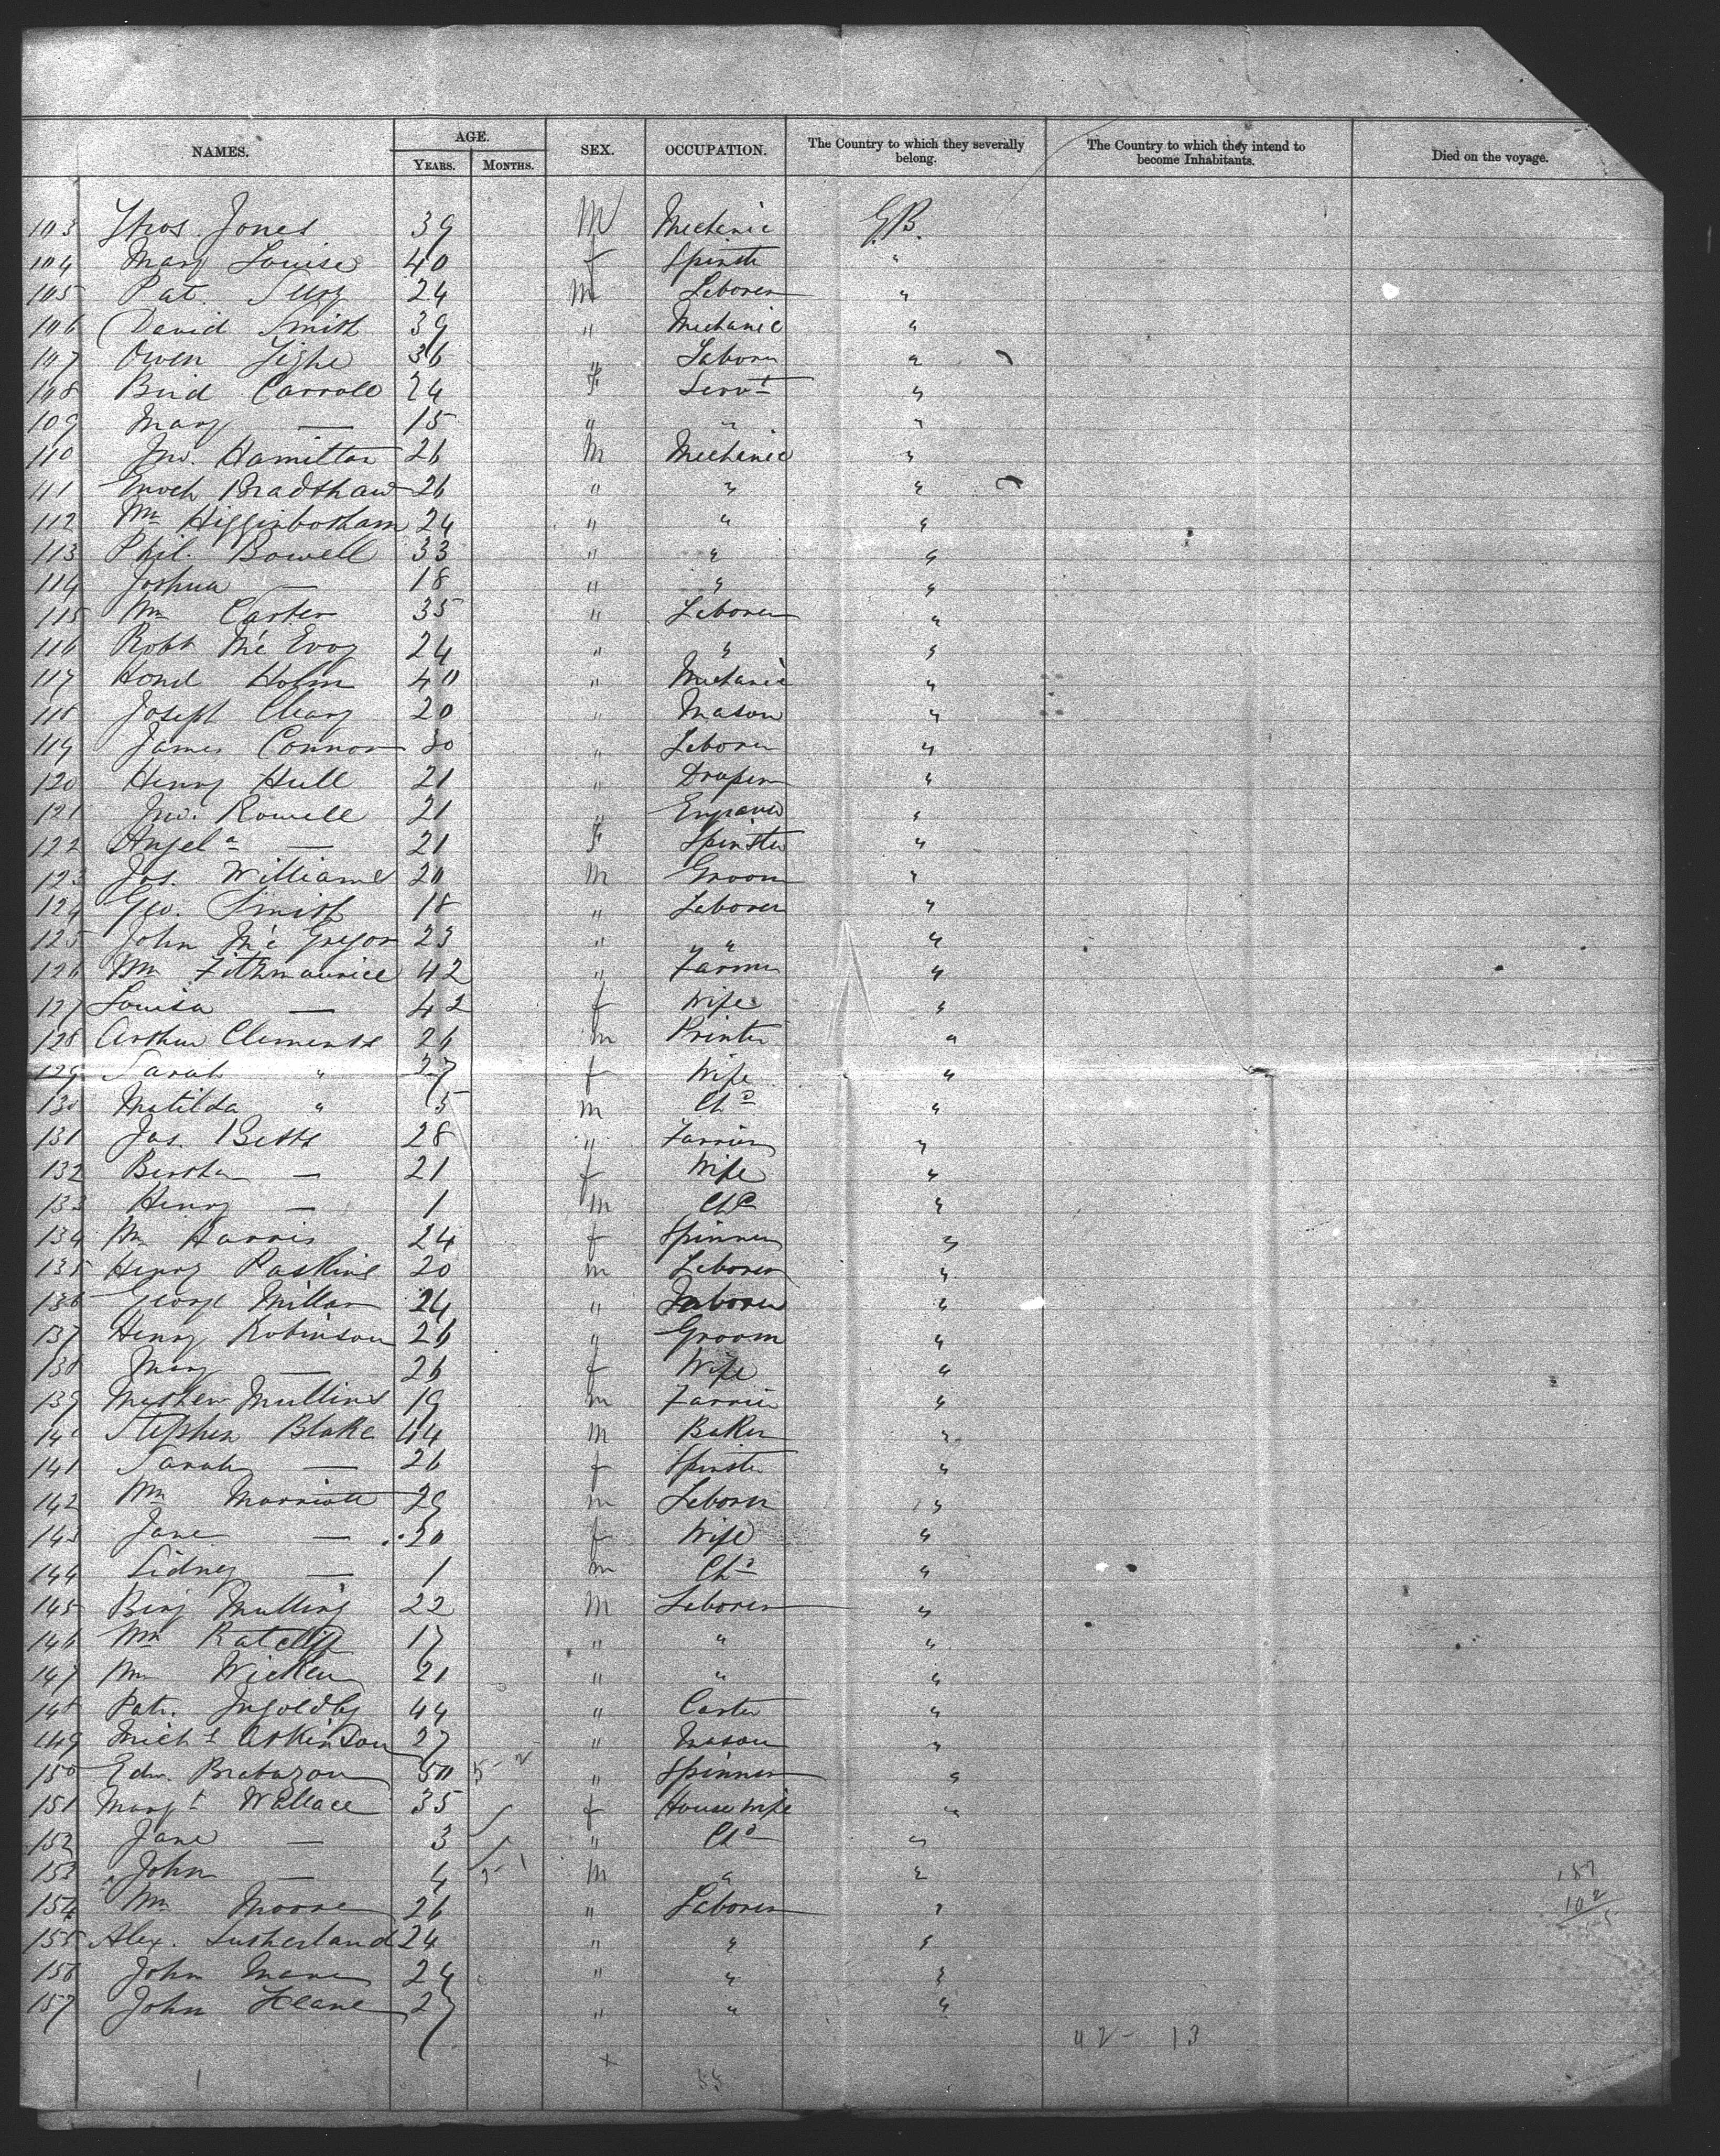 NAMES. AGE. YEARS. MONTHS. SEX. OCCUPATION. The Country to which they severally belong. The Country to which they intend to become Inhabitants. Died on the voyage.
103 Thos. Jones 39 M Mechanic G.B.
104 Mary Louise 40 f Spinstr "
105 Pat. 24 M Laborer "
106 David Smith 39 " Mechanic "
107 Owen Tighe 36 " Laborer "
108 Brid Carroll 24 F Servt "
109 Mary — 15 " " "
110 Jno. Hamilton 26 M Mechanic "
111 Enoch Bradshaw 26 " " "
112 Wm Higginbotham 24 " " "
113 Phil. Bowell 33 " " "
114 Joshua — 18 " " "
115 Wm Carter 35 " Laborer "
116 Robt McEvoy 24 " " "
117 Holm 40 " Mechanic "
118 Joseph Cleary 20 " Mason "
119 James Connor 30 " Laborer "
120 Henry Hull 21 " Draper "
121 Jno. Rowell 21 " Engraver "
122 Angela — 21 F Spinster "
123 Jos. Williams 20 M Groom "
124 Geo. Smith 18 " Laborer "
125 John McGregor 23 " " "
126 Wm Fithmaurice 42 " Farmer "
127 Louisa — 42 f Wife "
128 Arthur Clements 26 m Printer "
129 Sarah " 27 f Wife "
130 Matilda " 5 m Chd "
131 Jas. Betts 28 " Farrier "
132 Bertha — 21 f Wife "
133 Henry — 1 m Chd "
134 Wm Harris 24 f Spinner "
135 Henry Paskins 20 m Laborer "
136 George Millar 24 " Laborer "
137 Henry Robinson 26 " Groom "
138 Mary — 26 f Wife "
139 Mathew Mullins 19 m Farrier "
140 Stephen Blake 44 m Baker "
141 Sarah — 26 f Spinstr "
142 Wm Marriott 29 m Laborer "
143 Jane — 20 f Wife "
144 Sidney — 1 m Chd "
145 Benj Mulling 22 M Laborer "
146 Wm Ratcliff 17 " " "
147 Wm Wicken 21 " " "
148 Patr. Ingoldby 44 " Carter "
149 Michl Atkinson 27 " Mason "
150 Edw. Brabazon 50 " Spinner "
151 Margt Wallace 35 f Housewife "
152 Jane — 3 " Chd "
153 John — 4 m " "
154 Wm Moore 26 " Laborer "
155 Alex. Sutherland 24 " " "
156 John 24 " " "
157 John Keane 27 " " "
42 - 13
55